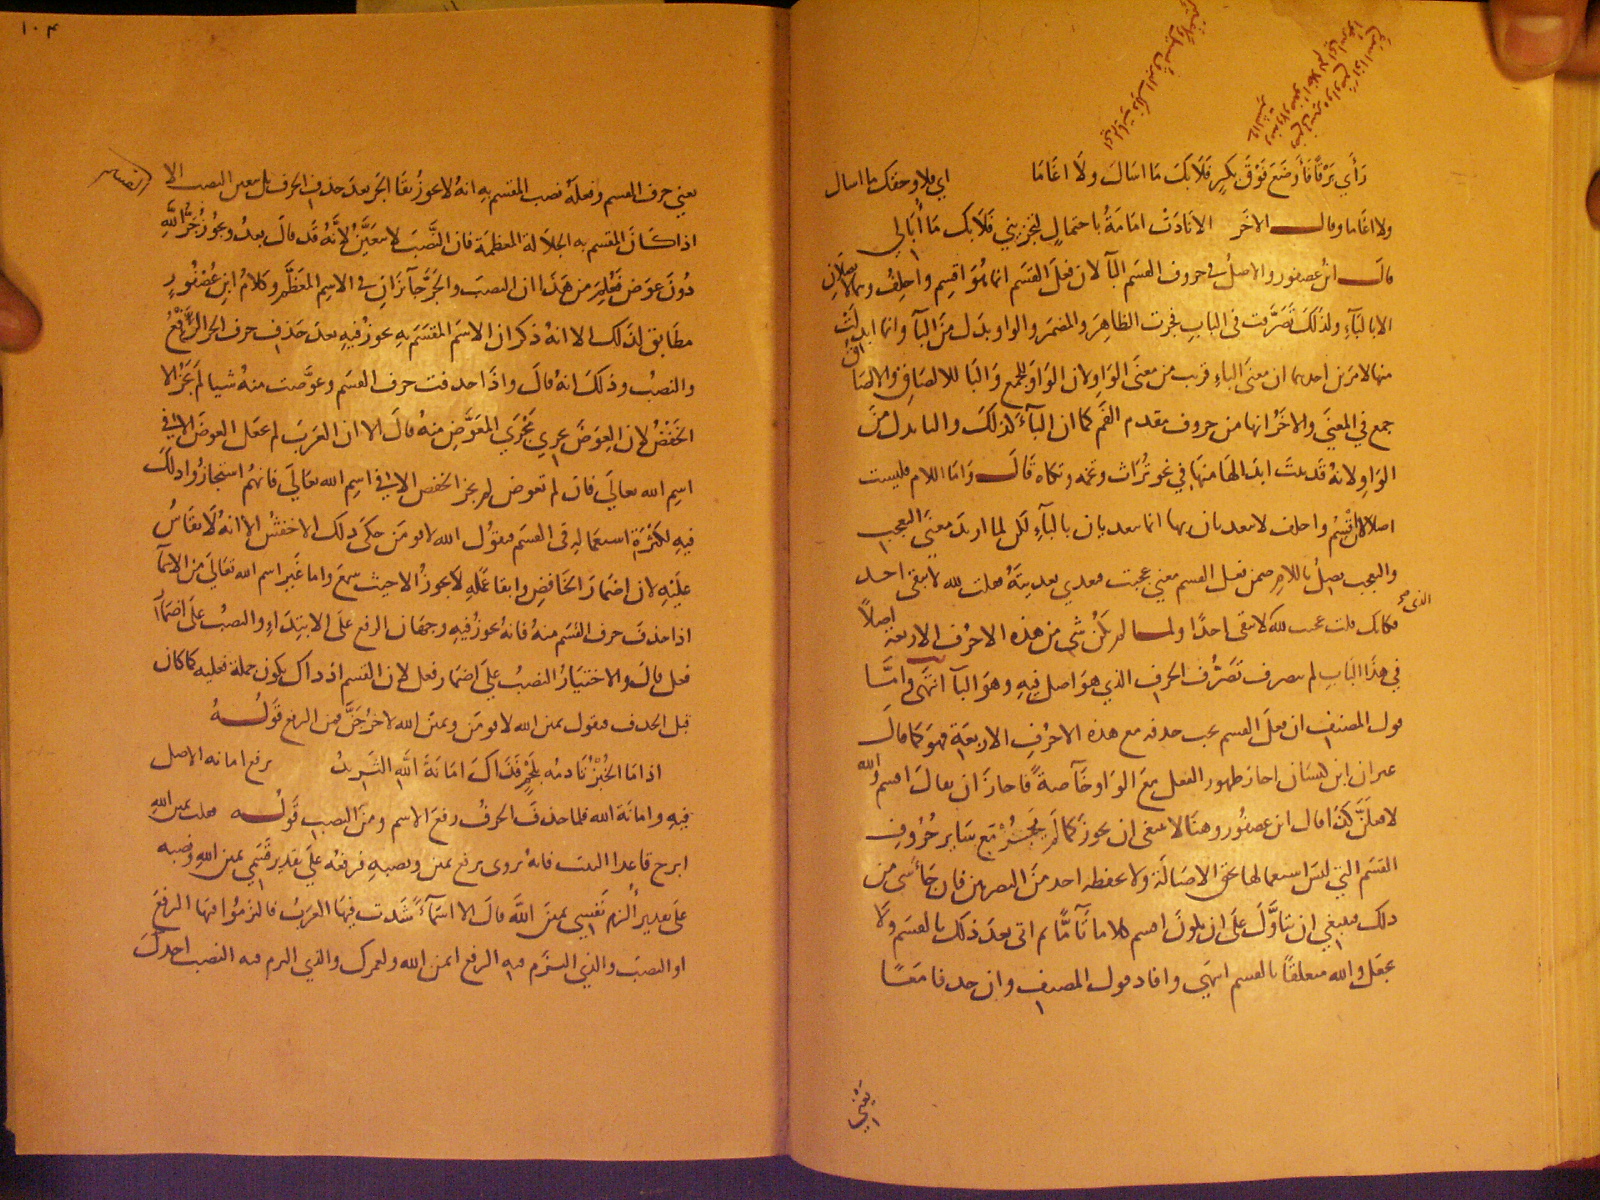 رَأَي بَرْقًا فَأَوضَعَ فَوْقَ بَكرٍ فَلَا بَكَ مَا اسَالَ ولَا اغَامَا اي فلا وحقك ما اسال
ولا اغاما وقال الاخر الا نادَتْ امَامَةُ باحتمالٍ لتحزنني فَلَا بك مَا أُبَالي
قال ابن عصفور والاصلُ في حروف القسم البآ لان فعلَ القَسَم انما هُوَ اقسِم واحلِفُ وهما لا يصلان
الا بالبَآءِ ولذلكَ تَصَرَّفت في البابِ فجرت الظاهِرَ والمضمَر والواو بدَل منَ البآ وانما ابدلَتْ
منها لامرين احدهما ان معنَى الباءِ قريب من معنَى الوَاوِ لان الوَاوَ للجمع وَالبَا للالصَاقِ والالصَاق
جمع في المعنَي والاخَرُ انها من حروف مقدم الفَم كما ان البآءَ كذلكَ والتا بدل منَ
الوَاوِ لانهُ قد ثبتَ ابدَالها منهَا في نحو تُرَاث وتخمه وتكاه قَالَ وَامَا اللام فليست
اصلا لان اقْسِمُ واحلف لا يتعديان بها انما يتعديان بالبآءِ لكن لما اريدَ معنَي التعجب
والتعجب يصلُ باللامِ ضمن فعل القسم معني عجبت فعدي بعديتهُ فقلت لله لا يبقى احد
فكانك قلت عجبت لله لا يبقى احدًا ولما لم يكُن شي من هذه الاحرُف الاربعة اصلاً
الذي هو
في هذَا البَابِ لم يتصرف تصَرُّفَ الحرفِ الذي هوَ اصل فيهِ وهوَ البآ انتهَى وامَّا
قول المصنفِ ان فعلَ القسم يجب حذفه مع هذه الاحرُفِ الاربعَةِ فهوَ كما قالَ
غير ان ابن كيسَان اجازَ ظهور الفعل معَ الوَاو خَآصةً فاجازَ ان يقالَ اقسم والله
لافعلَنَّ كذَا قال ابن عصفُور وهذَا لا ينبغي ان يجوزَ كما لَم يَجُزْ مَع سَاير حُرُوفِ
القسَم التي ليسَ استعمالها بحق الاصَالَةِ ولا يحفظه احد منَ البصرين فان جَآ شي من
ذلك فينبغي ان يتَاوَّلَ علَى ان يكونَ اقسم كلاما تَآمًّا ثم اتى بعدَ ذَلكَ بالقسَم ولَا
يجعَل والله متعلقًا باقسم انتهَي وافاد قول المصنفِ وان حذفا معًا
يَعْني
١٠٤
يعني حرف القسم وفعلَهُ نصب المقسَم بهِ انهُ لا يجوزُ بقَا الجَر بعدَ حذفِ الحرف بل يتعين النصب الا
اذا كَانَ المقسم به الجَلَالة المعظمَة فان النَّصبَ لا يتعَيَّن لانَّهُ قَد قالَ بعدُ ويجُوزُ جَرُّ اللهِ
دُونَ عوَض فَعُلِمَ من هَذَا ان النصبَ والجَرّ جآئزَانِ في الاسِم المعَظَّمِ وكلامُ ابن عُصْفُورٍ
مطَابق لذَلك الا انهُ ذكرَ ان الاسمَ المقسَمَ بهِ يجوزُ فيهِ بعدَ حَذفِ حرف الجر الرَّفْعُ
والنصبُ وذلكَ انهُ قالَ واذَا حذفت حرف القسَم وعوَّضت منهُ شيا لَم يَجُزْ الا
الخفضُ لان العِوَضَ يجري مَجْرَي المعَوَّضِ منهُ قالَ الا ان العَرَبَ لم تجعَل العوضَ الا في
اسِمِ الله تعالَي فان لم تعوض لم يجز الخفض الا في اسِم الله تعَالَي فانهُم استجازُوا ذلكَ
فيهِ لكثرَةِ استعمَالهِ في القسَم فيقوُل الله لاقومَن حكَى ذلك الاخفشُ الا انهُ لَا يقَاسُ
عليْهِ لان اضمَارَ الخَافضِ وابقَا عَمَلهِ لَا يجوزُ الا حيث سمع واما غير اسم الله تعَالَي من الاسمآ
اذا حذفَ حرف القسَم منهُ فانهُ يجوزُ فيهِ وجهَان الرفع علَى الابتدَآءِ والنصبُ علَى اضمَار
فعل قالَ والاختيَارُ النصبُ علَى اضمَار فعل لان القسم اذ ذاك يكون جملة فعليه كما كان
قبل الحذف فيقول يمين الله لاقومَن ويمينَ الله لاخرُجَنَّ فمن الرفع قَولُهُ
اذا مَا الخُبْزُ تَادمُه بلَحْمٍ فَذَاكَ امَانَةُ اللهِ الثَّرِيدُ يرفع امانه الاصل
فيهِ وامانَة الله فلما حذفَ الحرفُ رفعَ الاسم ومنَ النصبِ قَولُه فقلت يمين الله
ابرح قاعدا البيت فانهُ يروى برفع يمين ونصبهِ فرفعُه علَى تقدير قَسَمي يمين اللهِ ونصبه
علَى تقدير أُلزم نَفْسِي يمينَ اللهِ قالَ الا اسمَآءً شَذت فيهَا العَربُ فالتزمُوا فيهَا الرفعَ
او النصبَ والذي التزم فيه الرفع ايمن الله ولعمرك والذي التزم فيه النصب اجدكَ